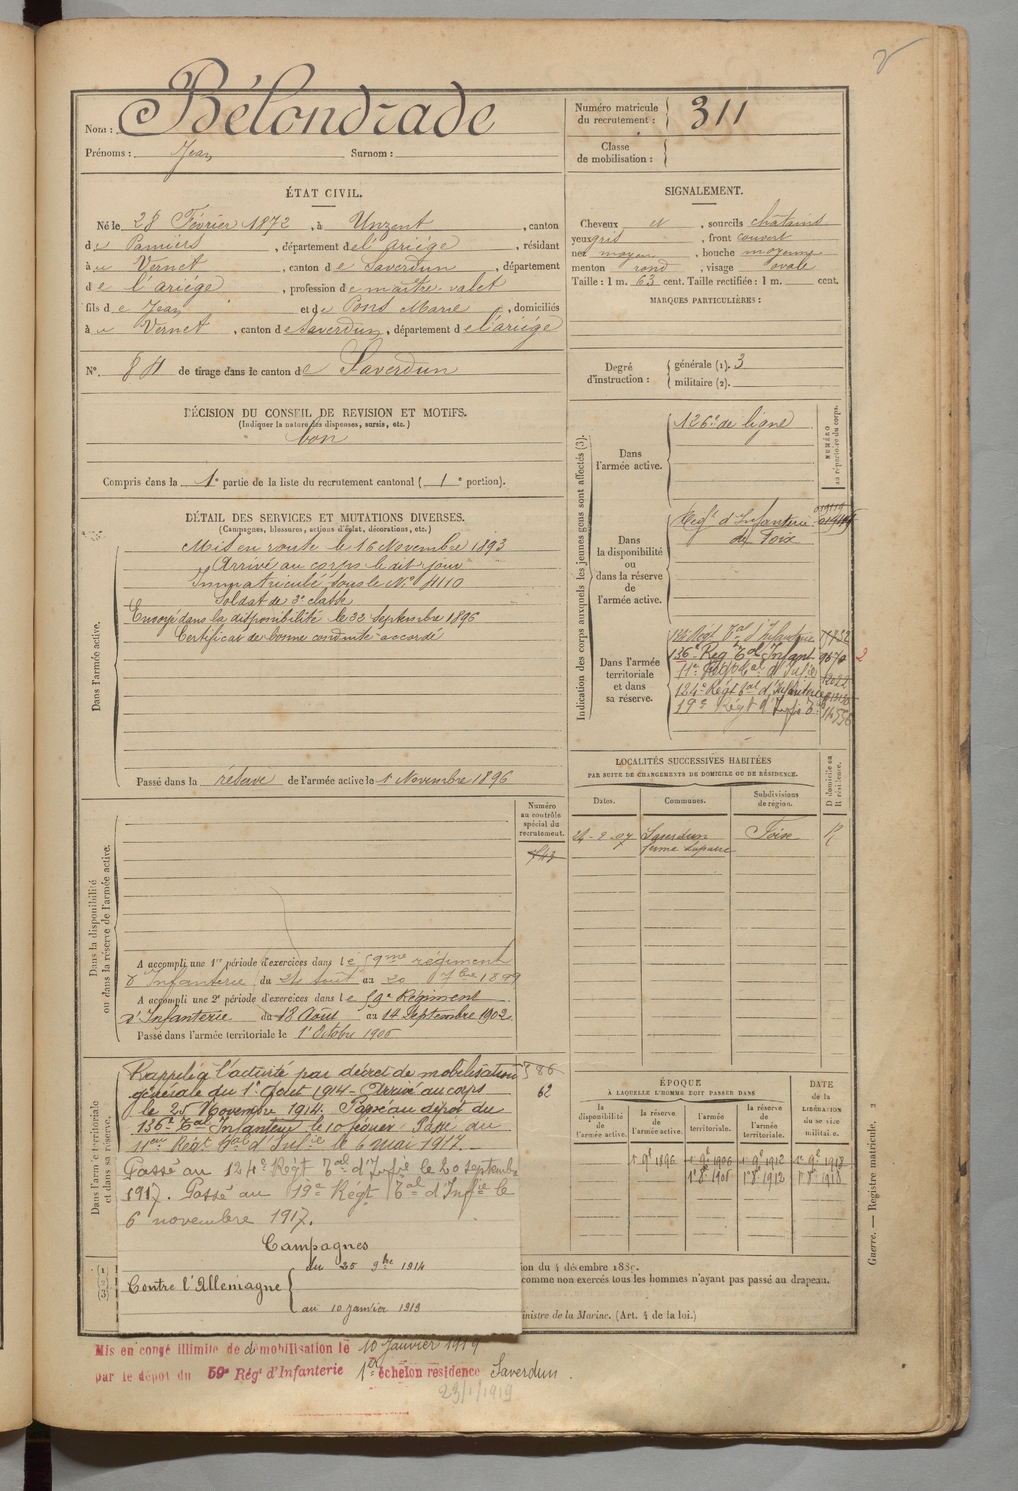 Nom : Bélondrade
Prénoms : Jean Surnom :
Numéro matricule du recrutement : 311
Classe de mobilisation :
ÉTAT CIVIL.
Né le 28 Février 1872, à Unzent, canton
de Pamiers, département de l'ariége, résidant
à u Vernet, canton de Saverdun, département
de l'ariége, profession de maître-valet
fils de Jean et de Pons Marie, domiciliés
à u Vernet, canton de Saverdun, département de l'ariége
N° 84 de tirage dans le canton de Saverdun
SIGNALEMENT.
Cheveux et, sourcils châtains
yeux gris, front couvert
nez moyen, bouche moyenne
menton rond, visage ovale
Taille : 1 m. 63 cent. Taille rectifiée : 1 m. cent.
MARQUES PARTICULIÈRES :
Degré d'instruction : générale (1). 3
militaire (2).
DÉCISION DU CONSEIL DE REVISION ET MOTIFS.
(Indiquer la nature des dispenses, sursis, etc.)
bon
Compris dans la 1e partie de la liste du recrutement cantonal (1e portion).
DÉTAIL DES SERVICES ET MUTATIONS DIVERSES.
(Campagnes, blessures, actions d'éclat, décorations, etc.)
Dans l'armée active.
Mis en route le 16 Novembre 1893
Arrivé au corps le dit jour
Immatriculé sous le N°
Soldat de 2e classe
Envoyé dans la disponibilité le 22 Septembre 1896
Certificat de bonne conduite accordé
Passé dans la réserve de l'armée active le 1 Novembre 1896
Indication des corps auxquels les jeunes gens sont affectés (3).
NUMÉRO au répertoire du corps.
Dans l'armée active.
126e de ligne
Dans la disponibilité ou dans la réserve de l'armée active.
Regt d'Infanterie
de Foix
Dans l'armée territoriale et dans sa réserve.
136e Reg Tal Infant
11e Regt Tal d'Infie
124e Régt Tal d'Infanterie
19e Régt d'Infie Tal
LOCALITÉS SUCCESSIVES HABITÉES
PAR SUITE DE CHANGEMENTS DE DOMICILE OU DE RÉSIDENCE.
D domicile ou R résidence.
Dates. Communes. Subdivisions de région.
Saverdun Foix R
ferme
Numéro au contrôle spécial du recrutement.
Dans la disponibilité ou dans la réserve de l'armée active.
A accompli une 1re période d'exercices dans le 59me régiment
d'Infanterie du 24 Aout au 20 7bre 1899
A accompli une 2e période d'exercices dans le 59e Régiment
d'Infanterie du 18 Août au 14 Septembre 1902.
Passé dans l'armée territoriale le 1 Octobre 1906
Dans l'armée territoriale et dans sa réserve.
Rappelé à l'activité par décret de mobilisation
générale du 1er Août 1914 - Arrivé au corps
le 25 Novembre 1914. Passé au dépôt du
136e Tal Infanterie le 10 février Passé au
11eme Régt Tal d'Infie le 6 Mai 1917.
Passé au 124e Régt Tal d'Infie le 20 septembre
1917. Passé au 19e Régt Tal d'Infie le
6 novembre 1917.
62
Campagnes
Contre l'Allemagne
du 25 9bre 1914
au 10 janvier 1919
ÉPOQUE
À LAQUELLE L'HOMME DOIT PASSER DANS
DATE de la LIBÉRATION du service militaire.
la disponibilité de l'armée active. la réserve de l'armée active. l'armée territoriale. la réserve de l'armée territoriale.
1er 9e 1896 1er 9e 1906 1er 9e 1912 1er 9e 1918
1er 8e 1912 1er 8e 1918
ion du 4 décembre 1889.
comme non exercés tous les hommes n'ayant pas passé au drapeau.
inistre de la Marine. (Art. 4 de la loi.)
Guerre. — Registre matricule.
Mis en congé illimité de démobilisation le 10 Janvier 1919
par le dépôt du 59e Régt d'Infanterie 1er échelon résidence Saverdun.
23/1/1919